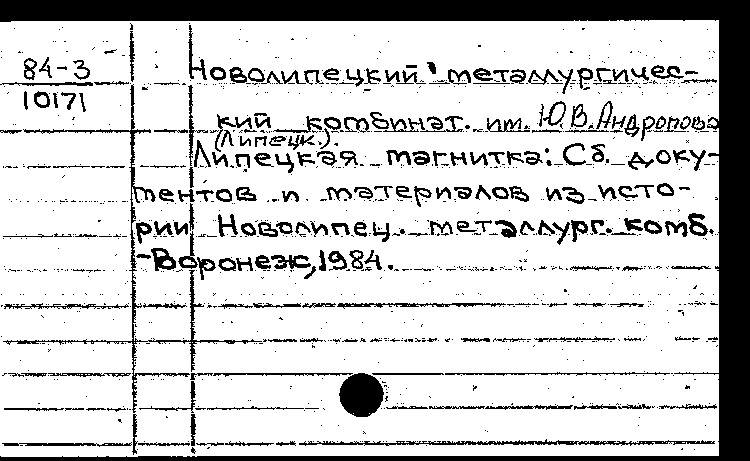 84-3
10171
Новолипецкий металлургичес-
кий комбинат. им. Ю.В. Андропова
(Липецк.).
Липецкая магнитка: Сб. доку-
ментов и материалов из исто-
рии Новолипец. металлург. комб.
-Воронеж, 1984.